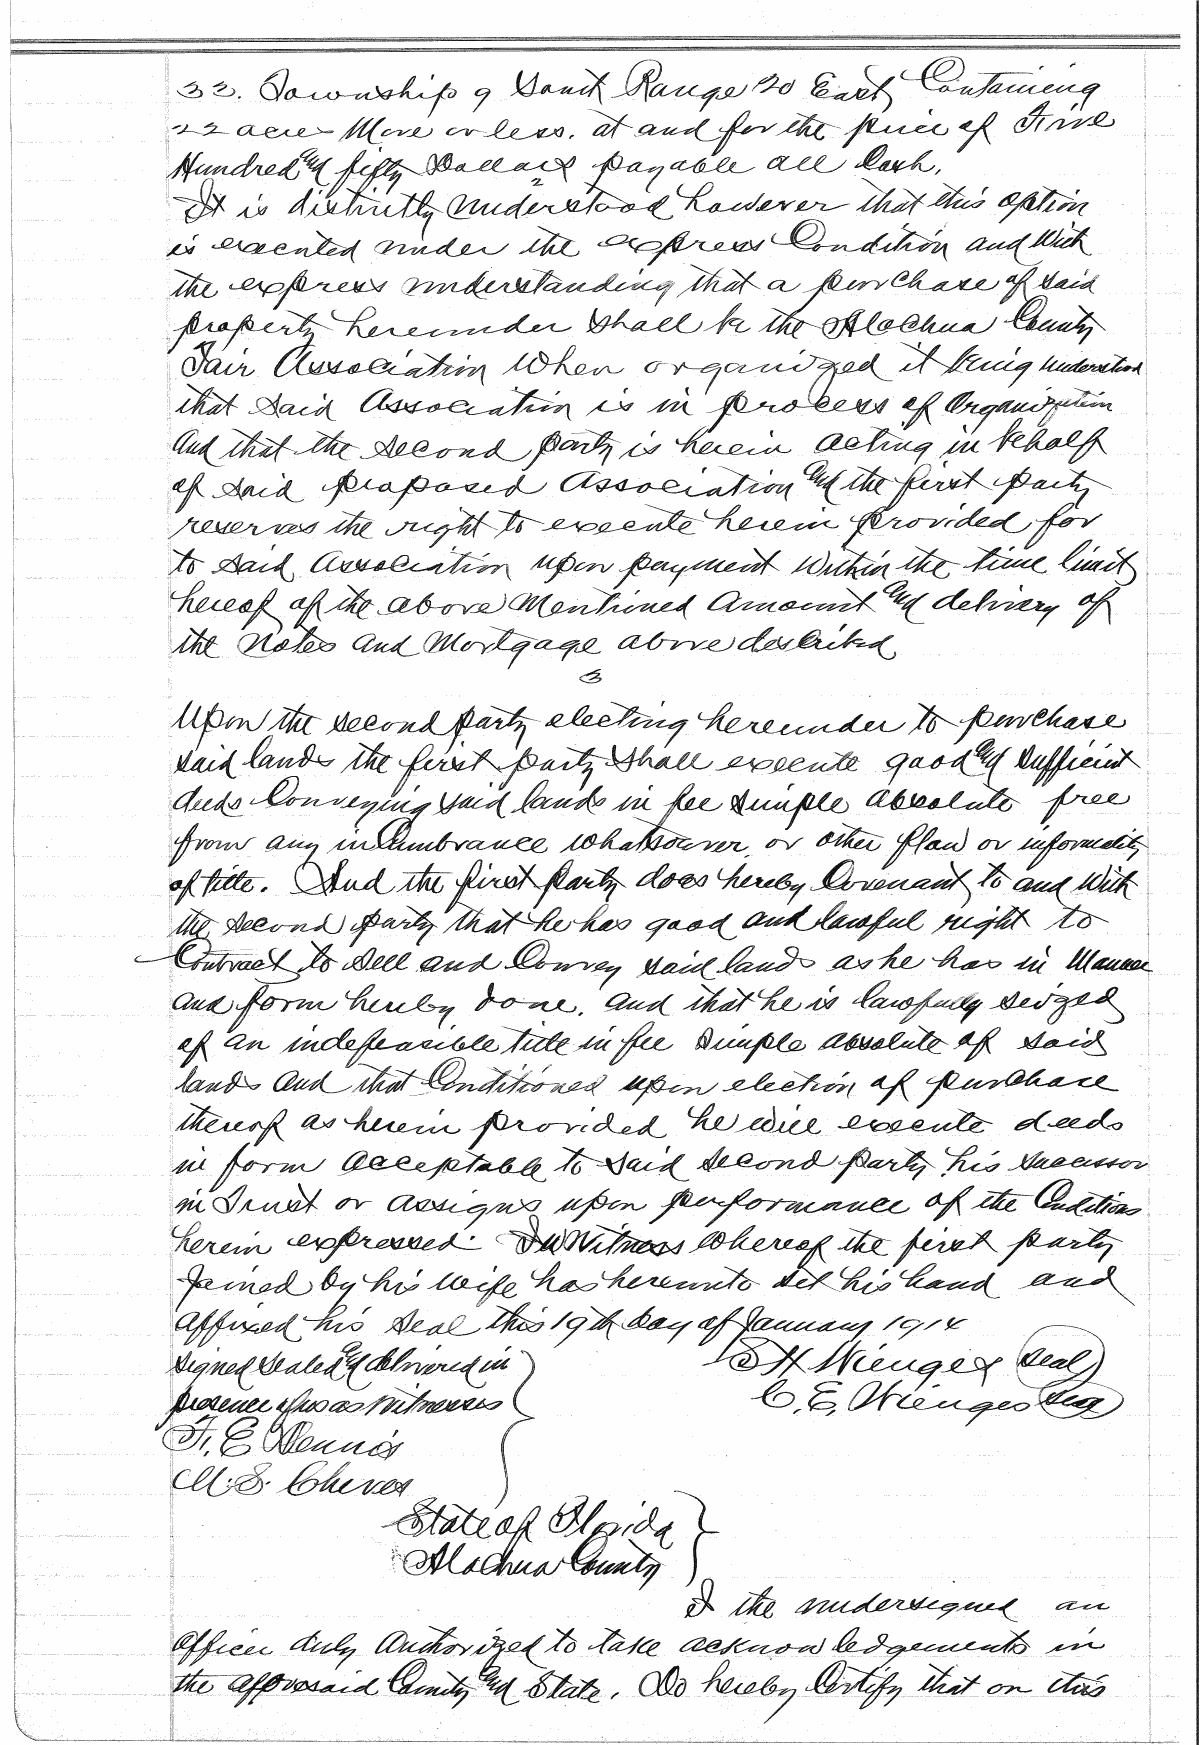 33. Township 9 South Range 20 East, Containing
22 acres More or less. at and for the price of Five
Hundred and fifty Dollars payable all Cash.
2
It is distinctly understood however that this option
is executed under the express Condition and with
the express understanding that a purchase of said
property hereunder shall be the Alachua County
Fair Association when organized it being understood
that said Association is in process of Organization
And that the second party is herein acting in behalf
of said proposed Association and the first party
reserves the right to execute herein provided for
to said Association upon payment within the time limit
hereof of the above Mentioned Amount and delivery of
the Notes and Mortgage above described
3
Upon the second party electing hereunder to purchase
said lands the first party shall execute good and sufficient
deeds Conveying said lands in fee simple absolute free
from any incumbrance whatsoever, or other flaw or informality
of title. And the first party does hereby Covenant to and with
the second party that he has good and lawful right to
Contract to sell and Convey said lands as he has in Manner
and form hereby done. and that he is lawfully seized
of an indefeasible title in fee simple absolute of said
lands and that Conditioned upon election of purchase
thereof as herein provided he will execute deeds
in form acceptable to said second party his successor
in Trust or assigns upon performance of the Conditions
herein expressed. In Witness whereof the first party
Joined by his wife has hereunto set his hand and
affixed his seal this 19th Day of January 1914
Signed sealed and delivered in
presence of us as Witnesses
S H Wienges (Seal)
C. E. Wienges (Seal)
F. E Dennis
M. S. Cheves
State of Florida
Alachua County
I the undersigned an
officer duly authorized to take acknowledgements in
the afforesaid County and State. Do hereby Certify that on this